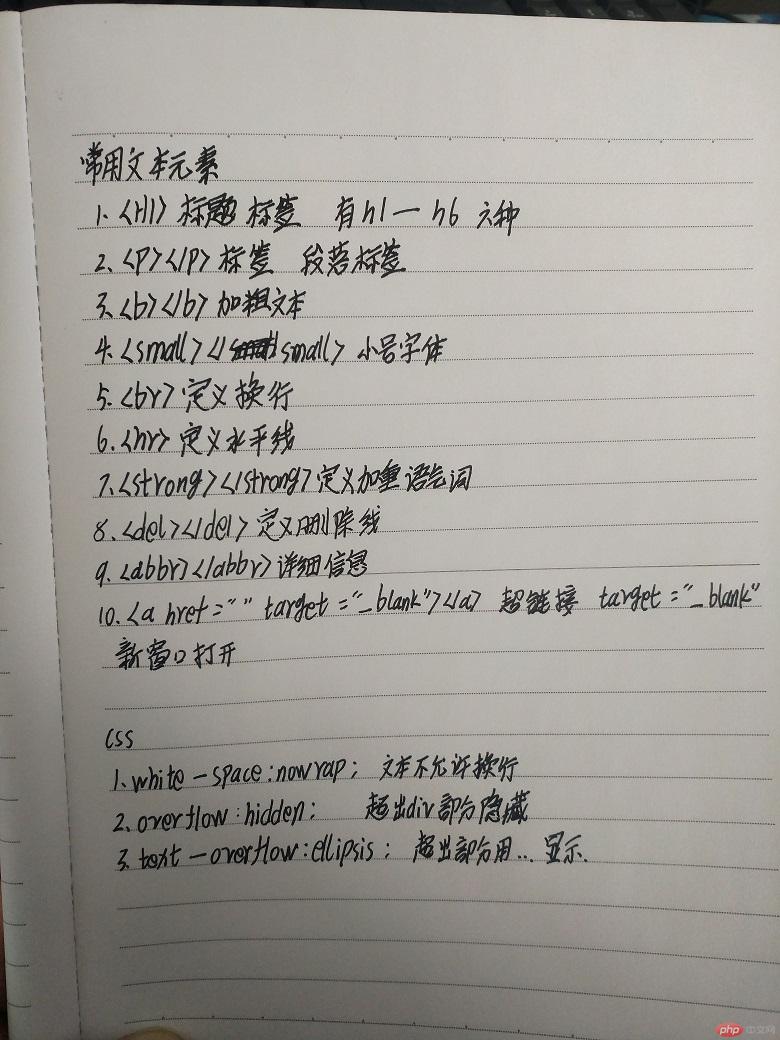 常用文本元素
1. <H1> 标题 标签 有h1—h6 六种
2. <p></p> 标签 段落标签
3. <b></b> 加粗文本
4. <small></small> 小号字体
5. <br> 定义换行
6. <hr> 定义水平线
7. <strong></strong> 定义加重语气词
8. <del></del> 定义删除线
9. <abbr></abbr> 详细信息
10. <a href="" target="_blank"></a> 超链接 target="_blank"
新窗口打开
CSS
1. white-space:nowrap; 文本不允许换行
2. overflow:hidden; 超出div部分隐藏
3. text-overflow:ellipsis; 超出部分用... 显示.
php 中文网